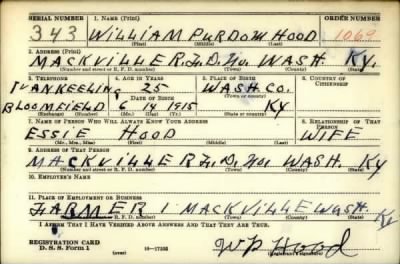 SERIAL NUMBER 1. NAME (Print) ORDER NUMBER
343 WILLIAM PURDOM HOOD 1069
(First) (Middle) (Last)
2. ADDRESS (Print)
MACKVILLE R.F.D. No. WASH. KY.
(Number and street or R. F. D. number) (Town) (County) (State)
3. TELEPHONE 4. AGE IN YEARS 5. PLACE OF BIRTH 6. COUNTRY OF CITIZENSHIP
25 WASH. CO.
DATE OF BIRTH (Town or county)
BLOOMFIELD 6 14 1915 KY
(Exchange) (Number) (Mo.) (Day) (Yr.) (State or country)
7. NAME OF PERSON WHO WILL ALWAYS KNOW YOUR ADDRESS 8. RELATIONSHIP OF THAT PERSON
ESSIE HOOD WIFE
(Mr., Mrs., Miss) (First) (Middle) (Last)
9. ADDRESS OF THAT PERSON
MACKVILLE R.F.D. No. WASH. KY
(Number and street or R. F. D. number) (Town) (County) (State)
10. EMPLOYER'S NAME
11. PLACE OF EMPLOYMENT OR BUSINESS
FARMER 1 MACKVILLE WASH. Ky
(Number and street or R. F. D. number) (Town) (County) (State)
I AFFIRM THAT I HAVE VERIFIED ABOVE ANSWERS AND THAT THEY ARE TRUE.
REGISTRATION CARD
D. S. S. Form 1 (over) 16—17105 W P Hood
(Registrant's signature)